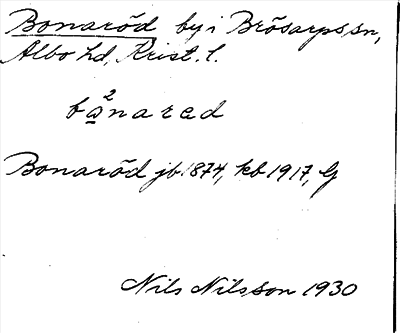 Bonaröd by i Brösarps sn,
Albo hd, Krist. l.
bo²nared
Bonaröd jb 1874, kb 1917, G
Nils Nilsson 1930